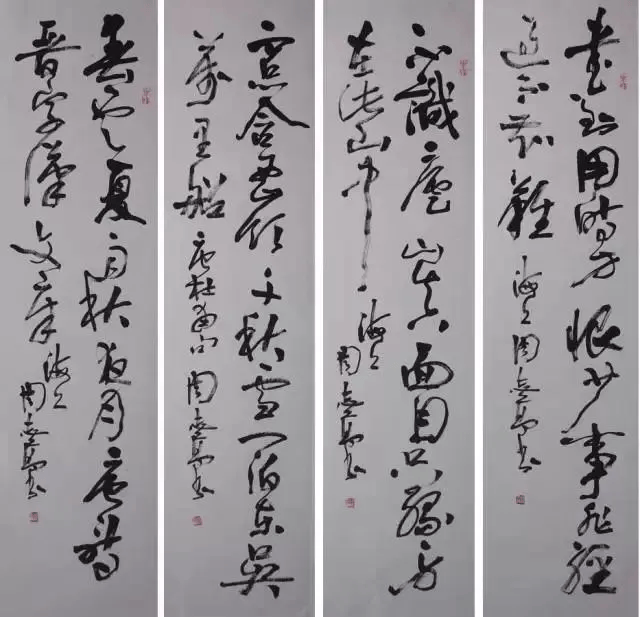 書到用時方恨少事非經
過不知難 海上周志高書
不識廬山真面目只緣身
在此山中 海上
周志高書
窗含西嶺千秋雪門泊東吳
萬里船 唐杜甫句 周志高書
春雲夏雨秋夜月唐詩
晉字漢文章 海上
周志高書